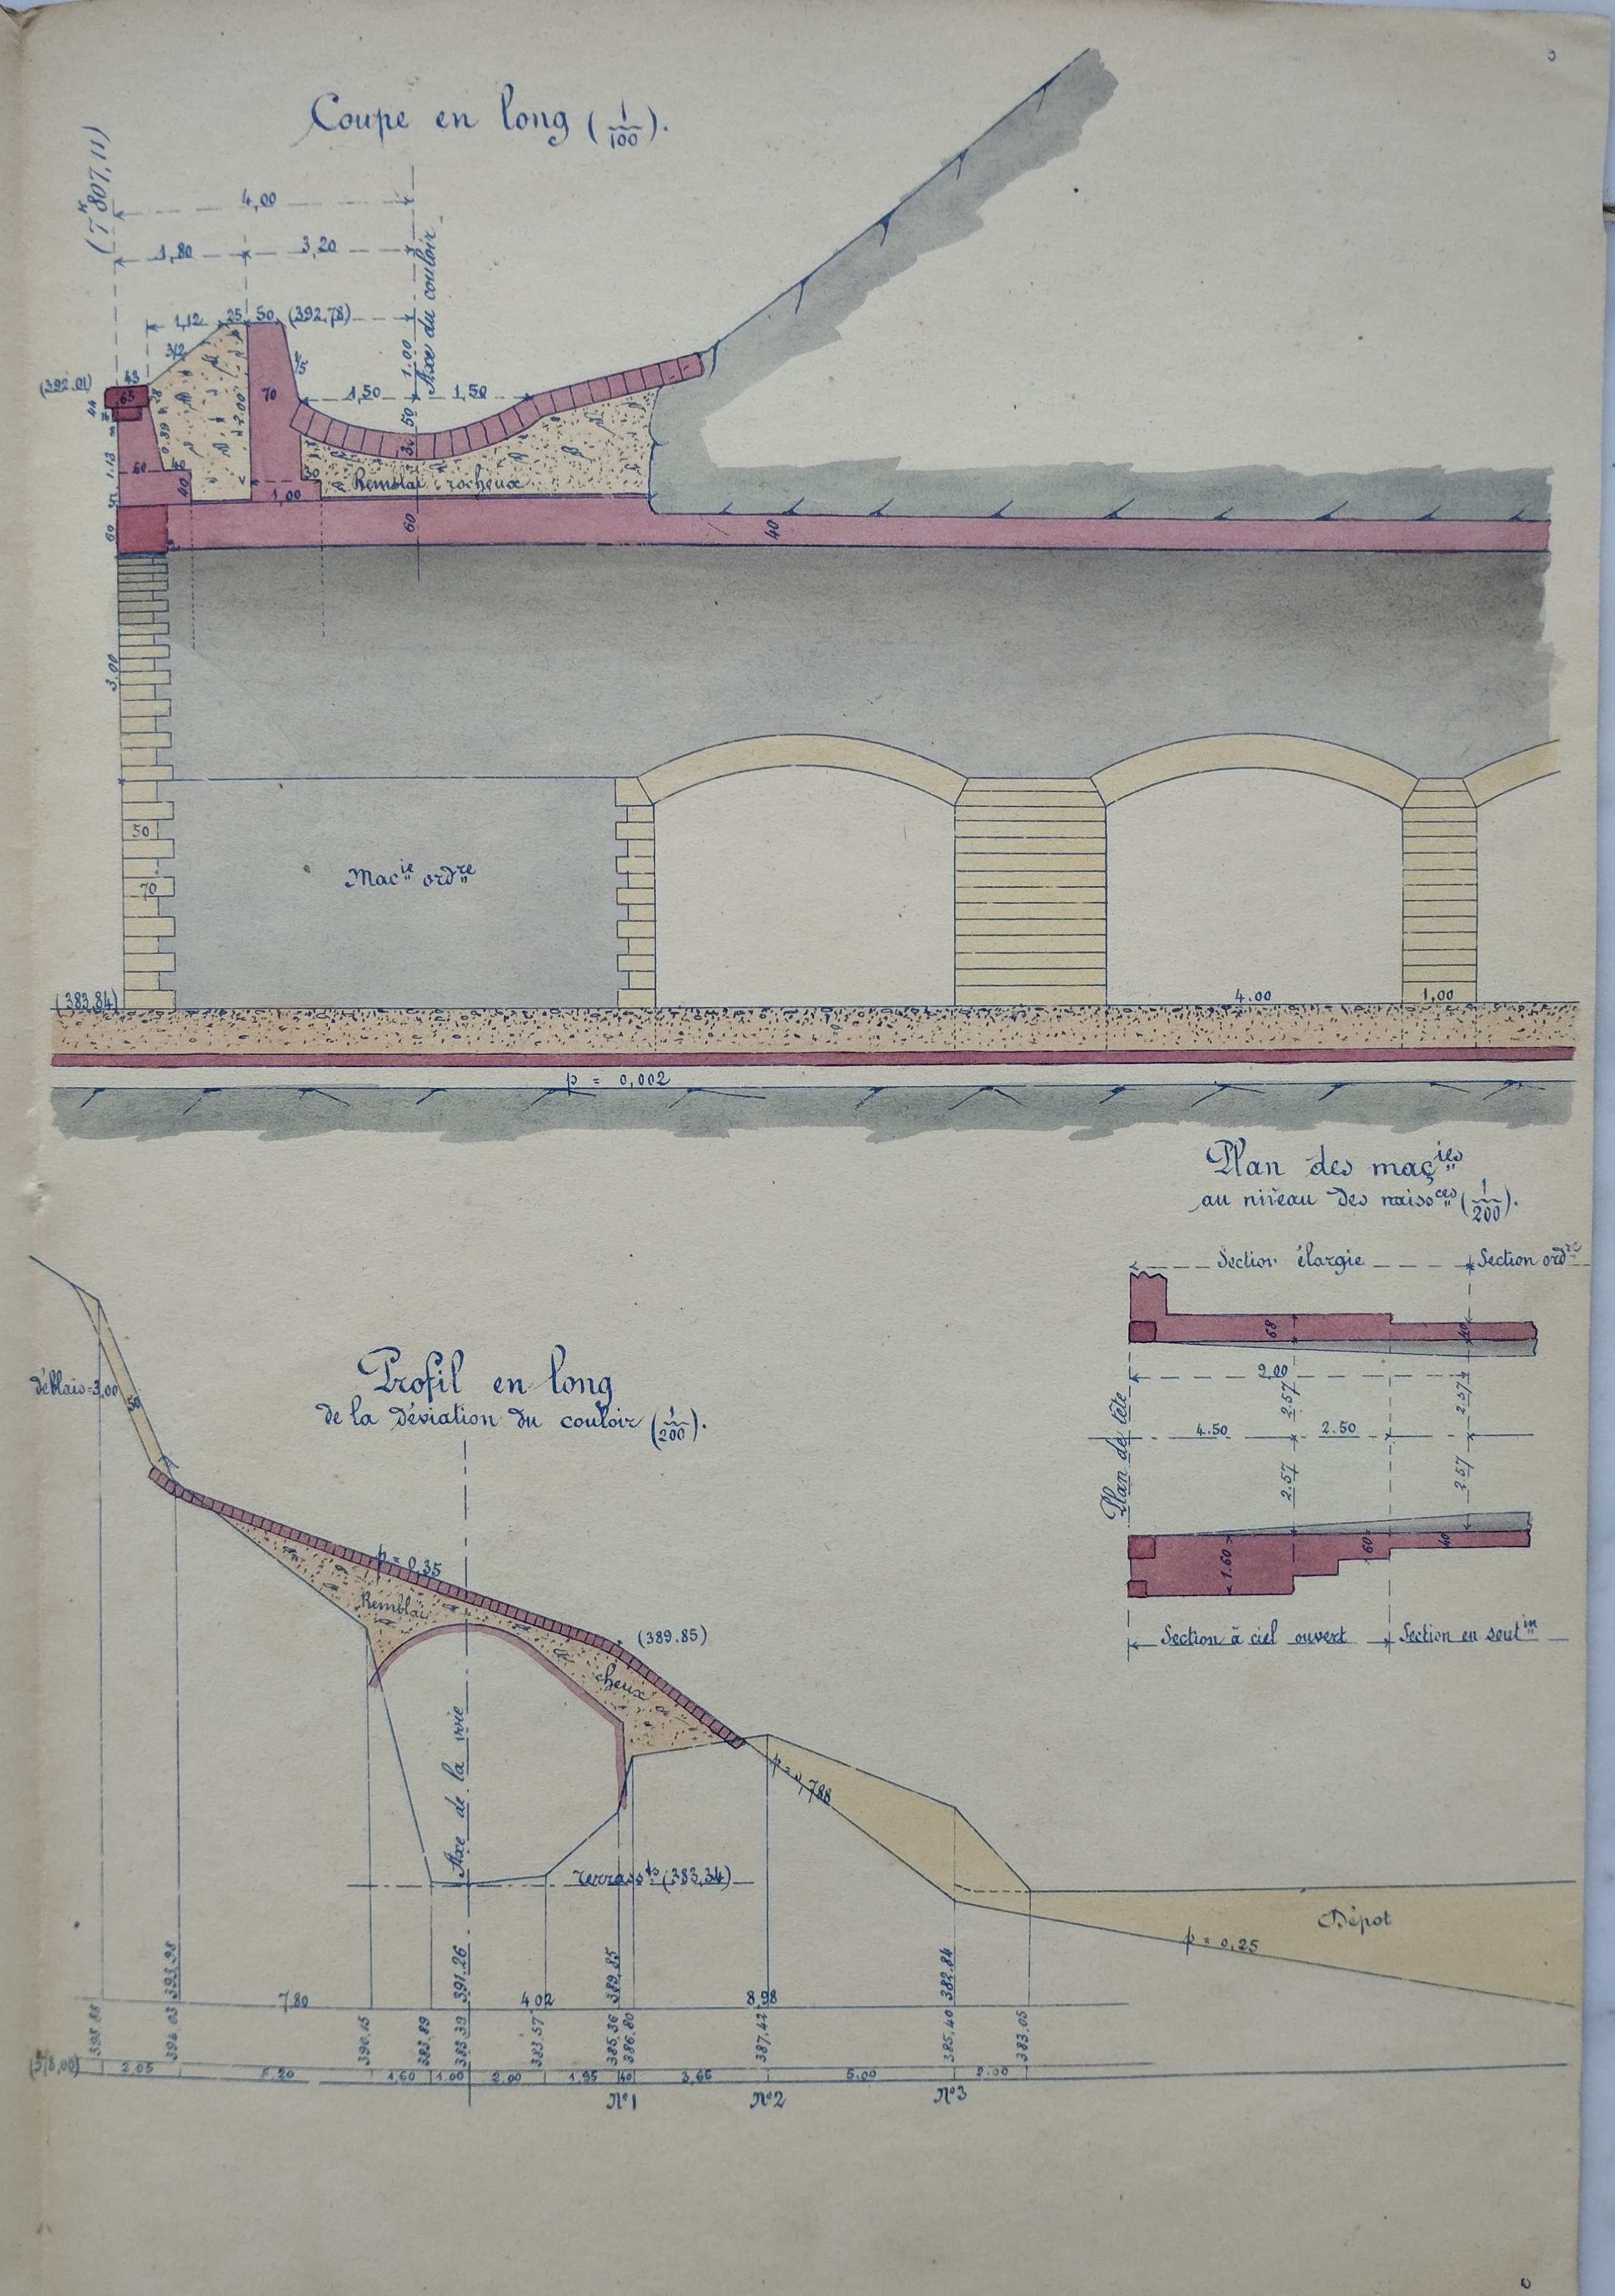 Coupe en long (1/100).
(7ᵏ 807,11)
4,00
1,80
3,20
Axe du couloir
1,12
25
50
(392,78)
1.00
3/2
1/5
(392.01)
43
65
44
70
1,50
1,50
50
2.00
0.89
1.13
60
45
40
30
Remblai rocheux
1,00
60
60
40
3.00
50
70
Macⁱᵉ ordʳᵉ
(383,84)
4.00
1,00
p = 0,002
Plan des maçⁱᵉˢ
au niveau des naissᶜᵉˢ (1/200).
Section élargie
Section ordʳᵉ
68
40
9,00
2.57
2.57
Plan de tête
4.50
2.50
2.57
2.57
1.60
60
40
Section à ciel ouvert
Section en soutⁱⁿ
Profil en long
de la déviation du couloir (1/200).
déblais=3,00
50
p = 0,35
Remblai
(389.85)
cheux
Axe de la voie
p = 0,788
Terrassᵗˢ (383,34)
Dépot
p = 0,25
393,98
391.26
389,85
382.84
7.80
4.02
8,98
398.88
394.03
390.15
383,89
383.39
383.57
385,36
386.80
387,42
385,40
383,05
(378,00)
2.05
5.20
1,60
1.00
2.00
1,95
40
3,66
5.00
2.00
Nº1
Nº2
Nº3